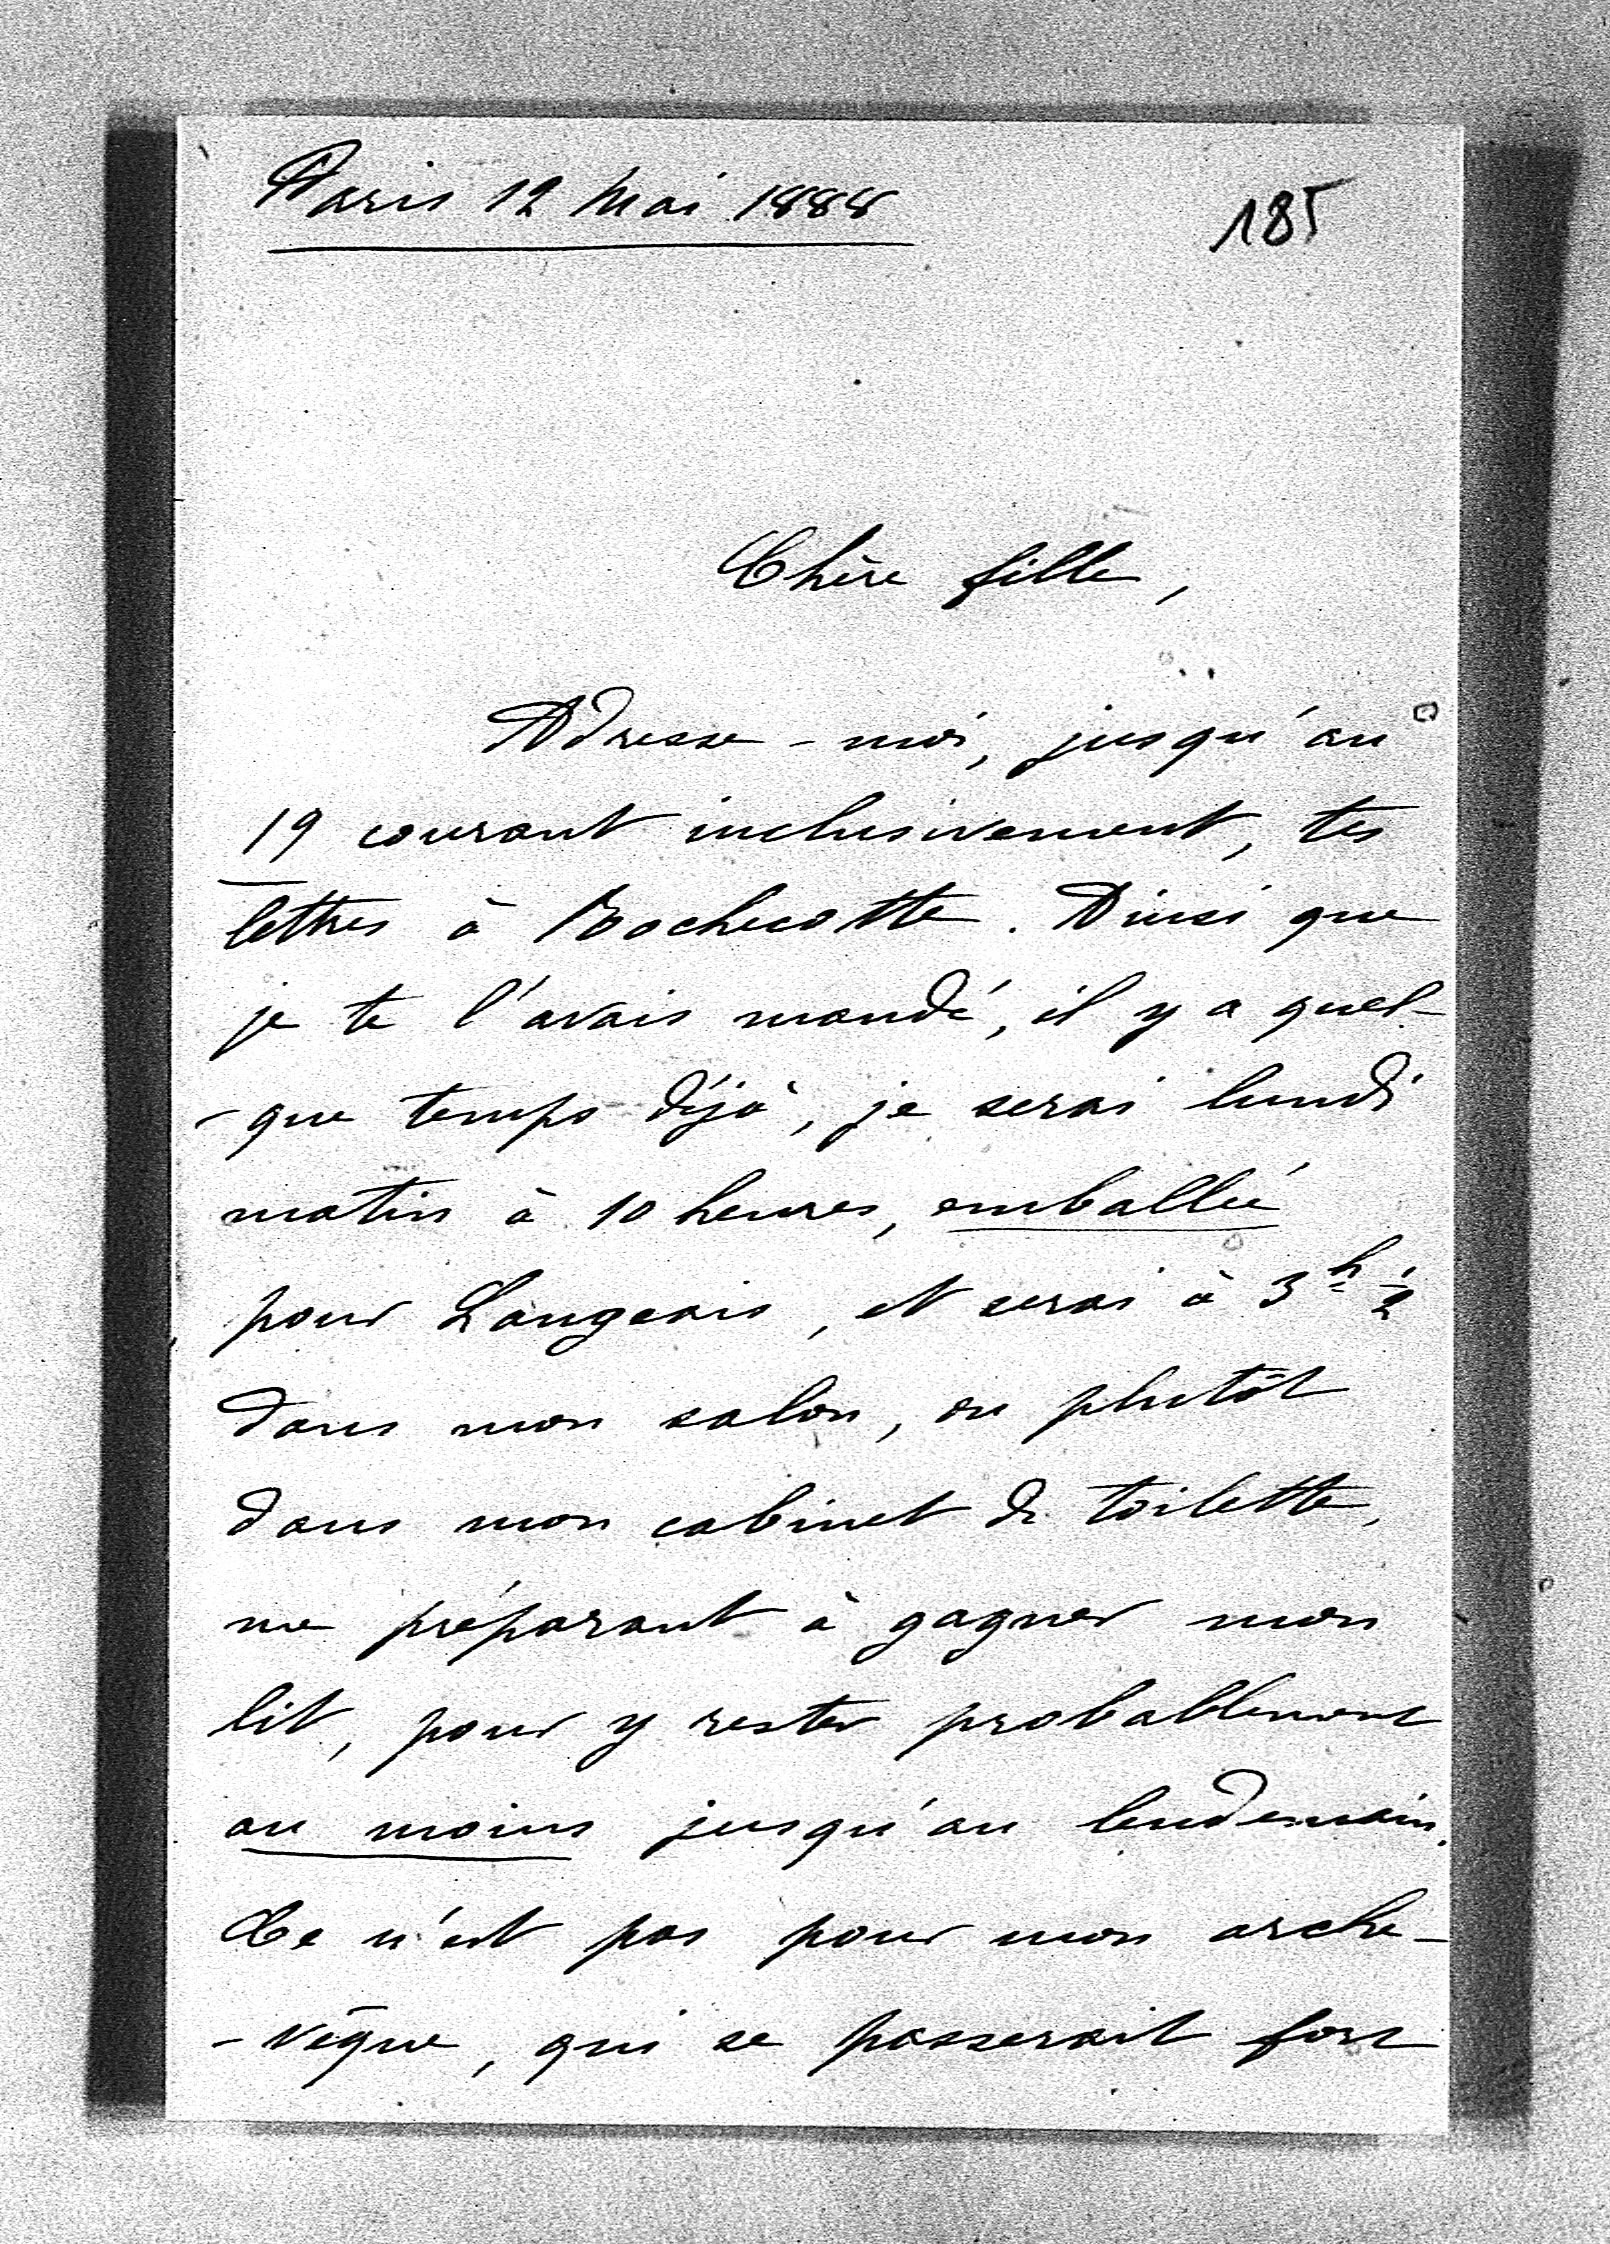 Paris 12 Mai 1888
185
Chère fille,
Adresse-moi, jusqu'au
19 courant inclusivement, tes
lettres à Rochecotte. Ainsi que
je te l'avais mandé, il y a quel-
-que temps déjà, je serai lundi
matin à 10 heures, emballée
pour Langeais, et serai à 3h 1/2
dans mon salon, ou plutôt
dans mon cabinet de toilette,
me préparant à gagner mon
lit, pour y rester probablement
au moins jusqu'au lendemain.
Ce n'est pas pour mon arche-
-vêque, qui se passerait fort